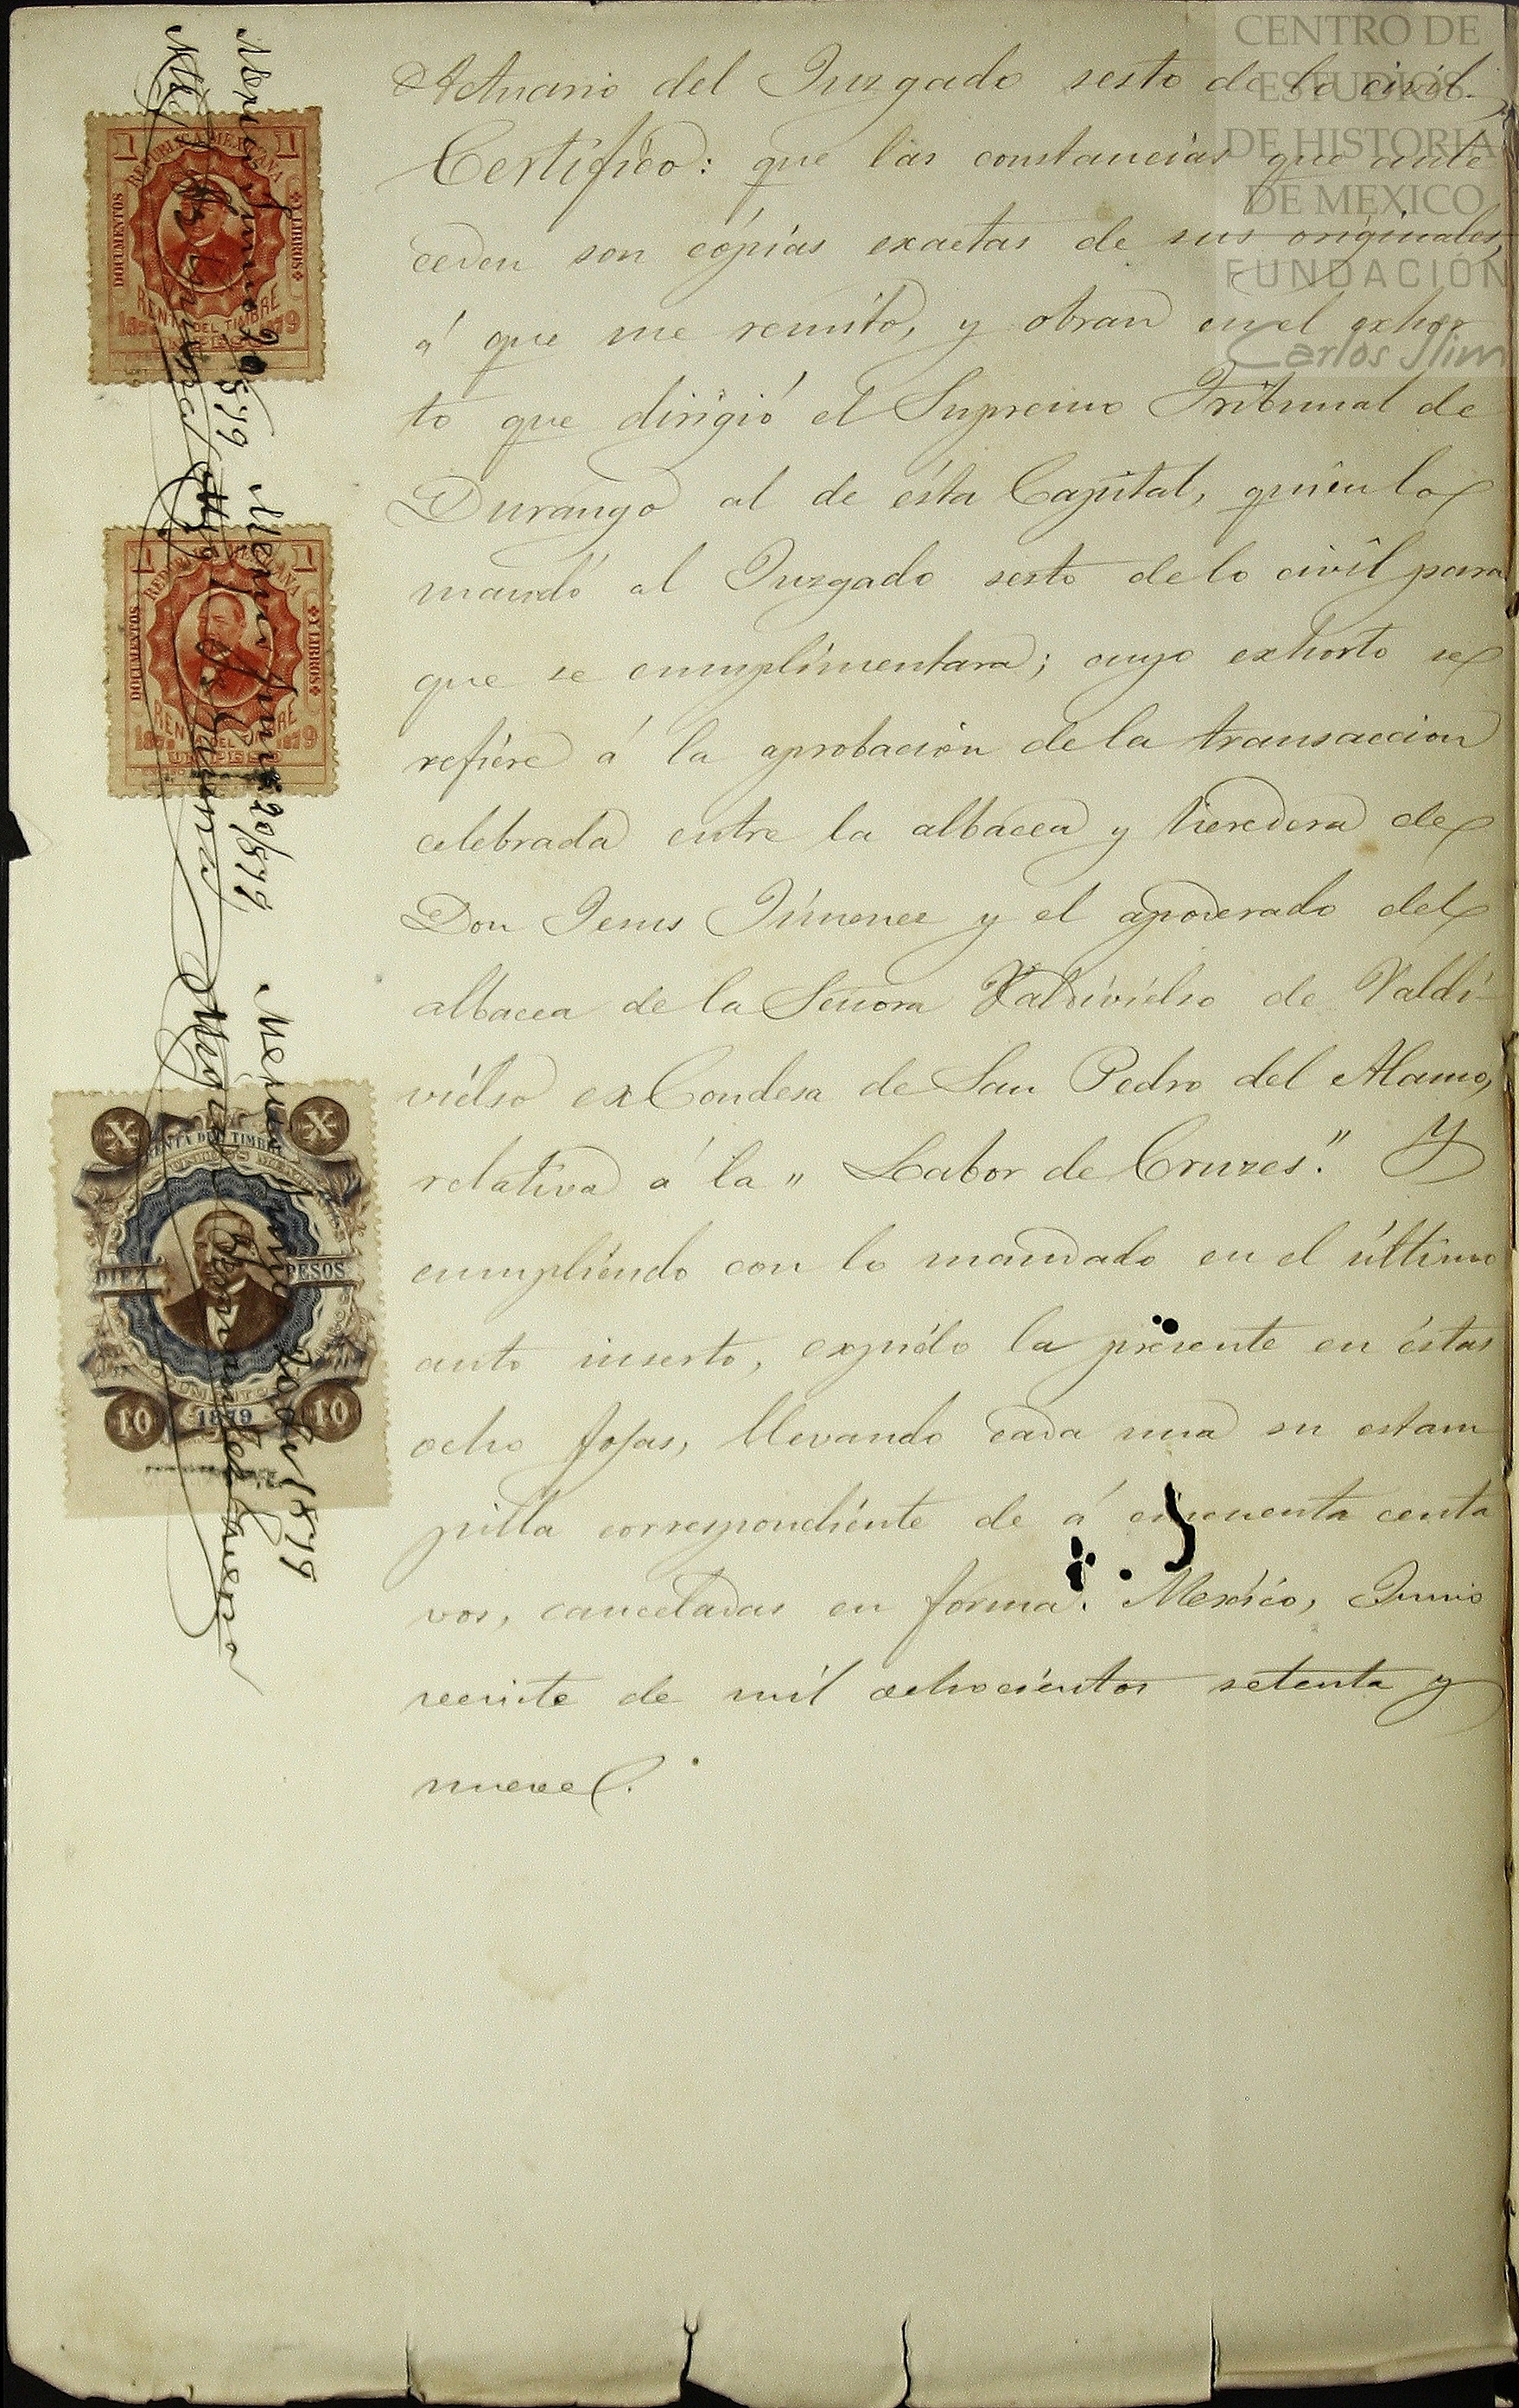 CENTRO DE
ESTUDIOS
DE HISTORIA
DE MEXICO
FUNDACIÓN
Carlos Slim
Actuario del Juzgado sesto de lo civil.
Certifico: que las constancias que ante
ceden son cópias exactas de sus originales,
á que me remito, y obran en el exhor
to que dirigió el Supremo Tribunal de
Durango al de ésta Capital, quien lo
mandó al Juzgado sesto de lo civil para
que se cumplimentara; cuyo exhorto se
refiere á la aprobacion de la transaccion
celebrada entre la albacea y heredera de
Don Jesus Jimenez y el apoderado del
albacea de la Señora Valdivielso de Valdi-
vielso ex Condesa de San Pedro del Alamo,
relativa á la " Labor de Cruzes." Y
cumpliendo con lo mandado en el último
auto inserto, expido la presente en éstas
ocho fojas, llevando cada una su estam
pilla correspondiente de á cincuenta centa
vos, canceladas en forma. Mexico, Junio
veinte de mil ochocientos setenta y
nueve.
1 1
REPUBLICA MEXICANA
DOCUMENTOS
Y LIBROS
RENTA DEL TIMBRE
1879
Mexico Junio 20/879
1 1
REPUBLICA MEXICANA
DOCUMENTOS
Y LIBROS
RENTA DEL TIMBRE
1879
UN PESO
Mexico Junio 20/879
X X
RENTA DEL TIMBRE
DIEZ PESOS
DOCUMENTOS
10 1879 10
Mexico Junio 20 de 1879